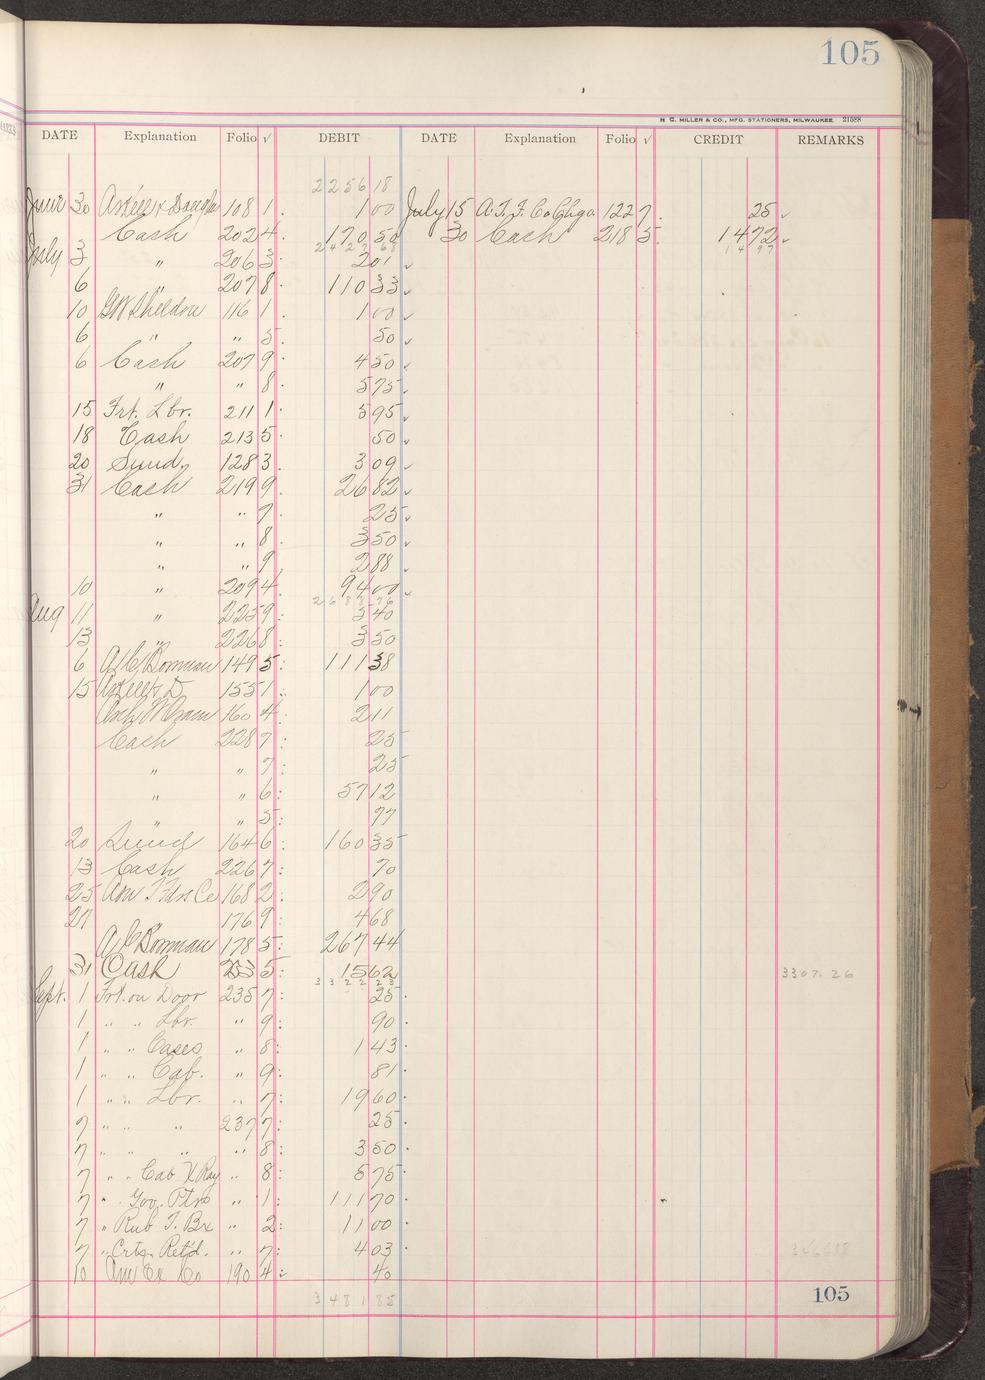 105
H. C. MILLER & CO., MFG. STATIONERS, MILWAUKEE. 21588
DATE Explanation Folio √ DEBIT DATE Explanation Folio √ CREDIT REMARKS
2256 18
June 30 108 1 1 00 July 15 122 7 25
Cash 202 4 170 50 30 Cash 218 5 14 72
2427 68 14 97
July 3 " 206 3 2 01
6 207 8 110 33
10 G W Sheldon 116 1 1 00
6 " " 5 50
6 Cash 207 9 4 50
" " 8 5 75
15 Frt. Lbr. 211 1 5 95
18 Cash 213 5 50
20 Sund. 128 3 3 09
31 Cash 219 9 26 82
" " 7 25
" " 8 3 50
" " 9 2 88
10 " 209 4 94 00
Aug 11 " 225 9 5 40
13 " 226 8 3 50
6 A C Bowman 149 5 111 38
15 155 1 1 00
160 4 2 11
Cash 228 7 25
" " 7 25
" " 6 57 12
" " 5 77
20 Sund 164 6 160 35
13 Cash 226 7 70
25 168 2 2 90
27 176 9 4 68
A C Bowman 178 5 267 44
31 Cash 233 5 15 62 3307.26
Sept. 1 Frt. on Door 235 7 25
1 " " Lbr. " 9 90
1 " " Cases " 8 1 43
1 " " Cab. " 9 81
1 " " Lbr. " 7 19 60
7 " " " 237 7 25
7 " " " " 8 3 50
7 " " Cab X Ray " 8 5 75
7 " " Gov. Ptrs " 1 111 70
7 " Rub T. Bx " 2 11 00
7 " Crtg. Ret'd. " 7 4 03
10 Am Ex Co 190 4 40
3481 85
105